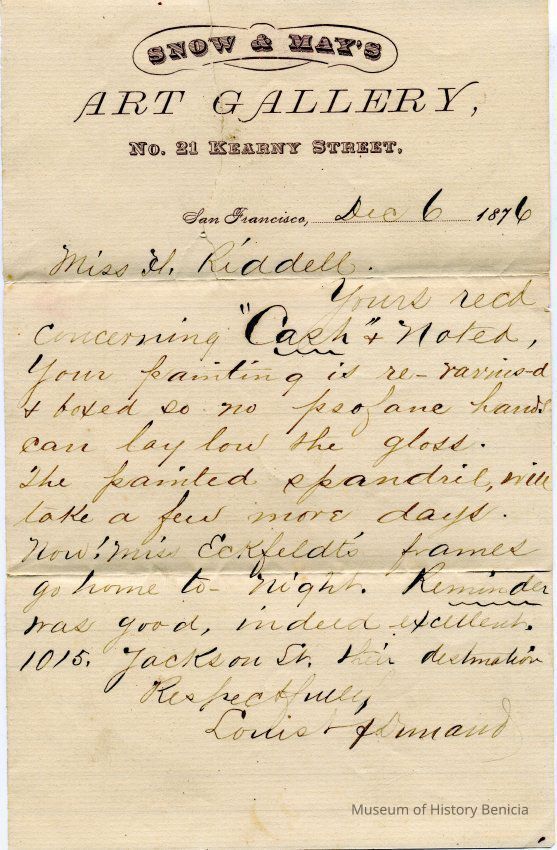 SNOW & MAY'S
ART GALLERY,
No. 21 KEARNY STREET.
San Francisco, Dec 6 1876
Miss H. Riddell.
Yours recd
concerning "Cash" & Noted,
Your painting is re-varnis-d
& boxed so no profane hands
can lay low the gloss.
The painted spandril, will
take a few more days.
Now! Miss Eckfeldt's frames
go home to-night. Reminder
was good, indeed excellent.
1015. Jackson St. their destination
Respectfully,
Louis
Museum of History Benicia